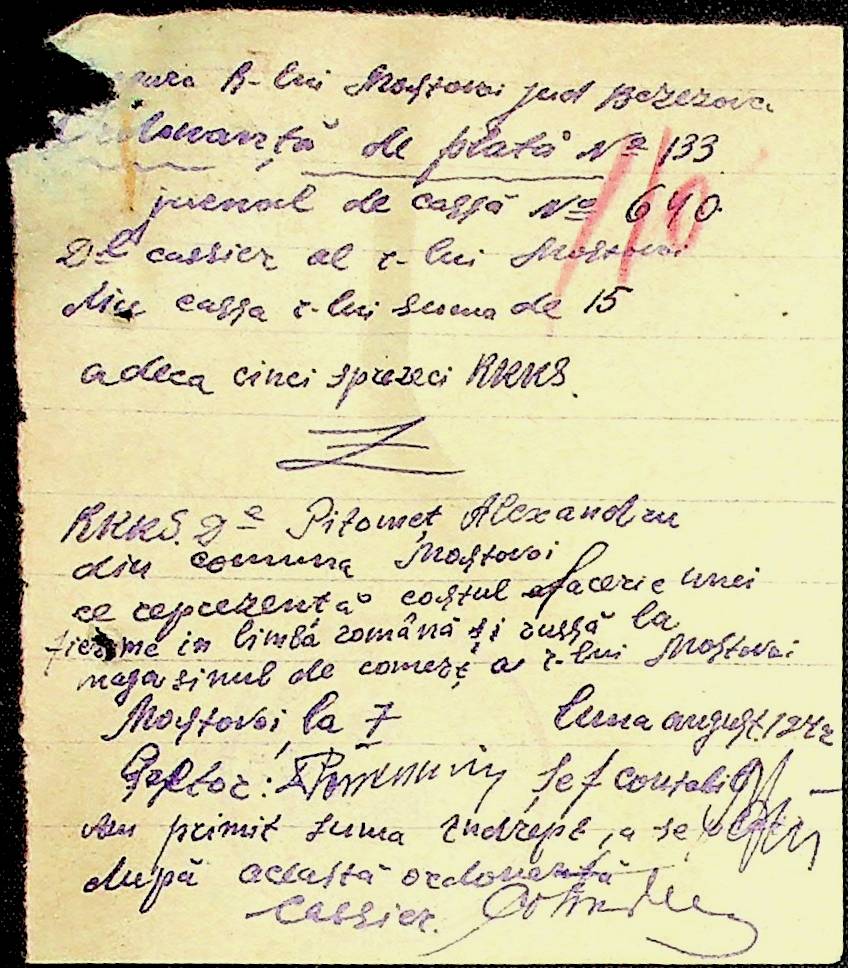 R-lui Mostovoi jud Berezovca
Ordonanță de plată № 133
jurnal de cassă № 640
116
Dl cassier al r-lui Mostovoi
din cassa r-lui suma de 15
adeca cinci sprezeci RKKS
RKKS. Dl Pitomeț Alexandru
din comuna Mostovoi
ce reprezentă costul afacerie unei
firme in limbă română și russă la
magasinul de comerț a r-lui Mostovoi
Mostovoi, la 7 luna august 1942
Pretor: șef contabil
Am primit suma indrept, a se plăti
după aceastā ordonanță
Cassier.